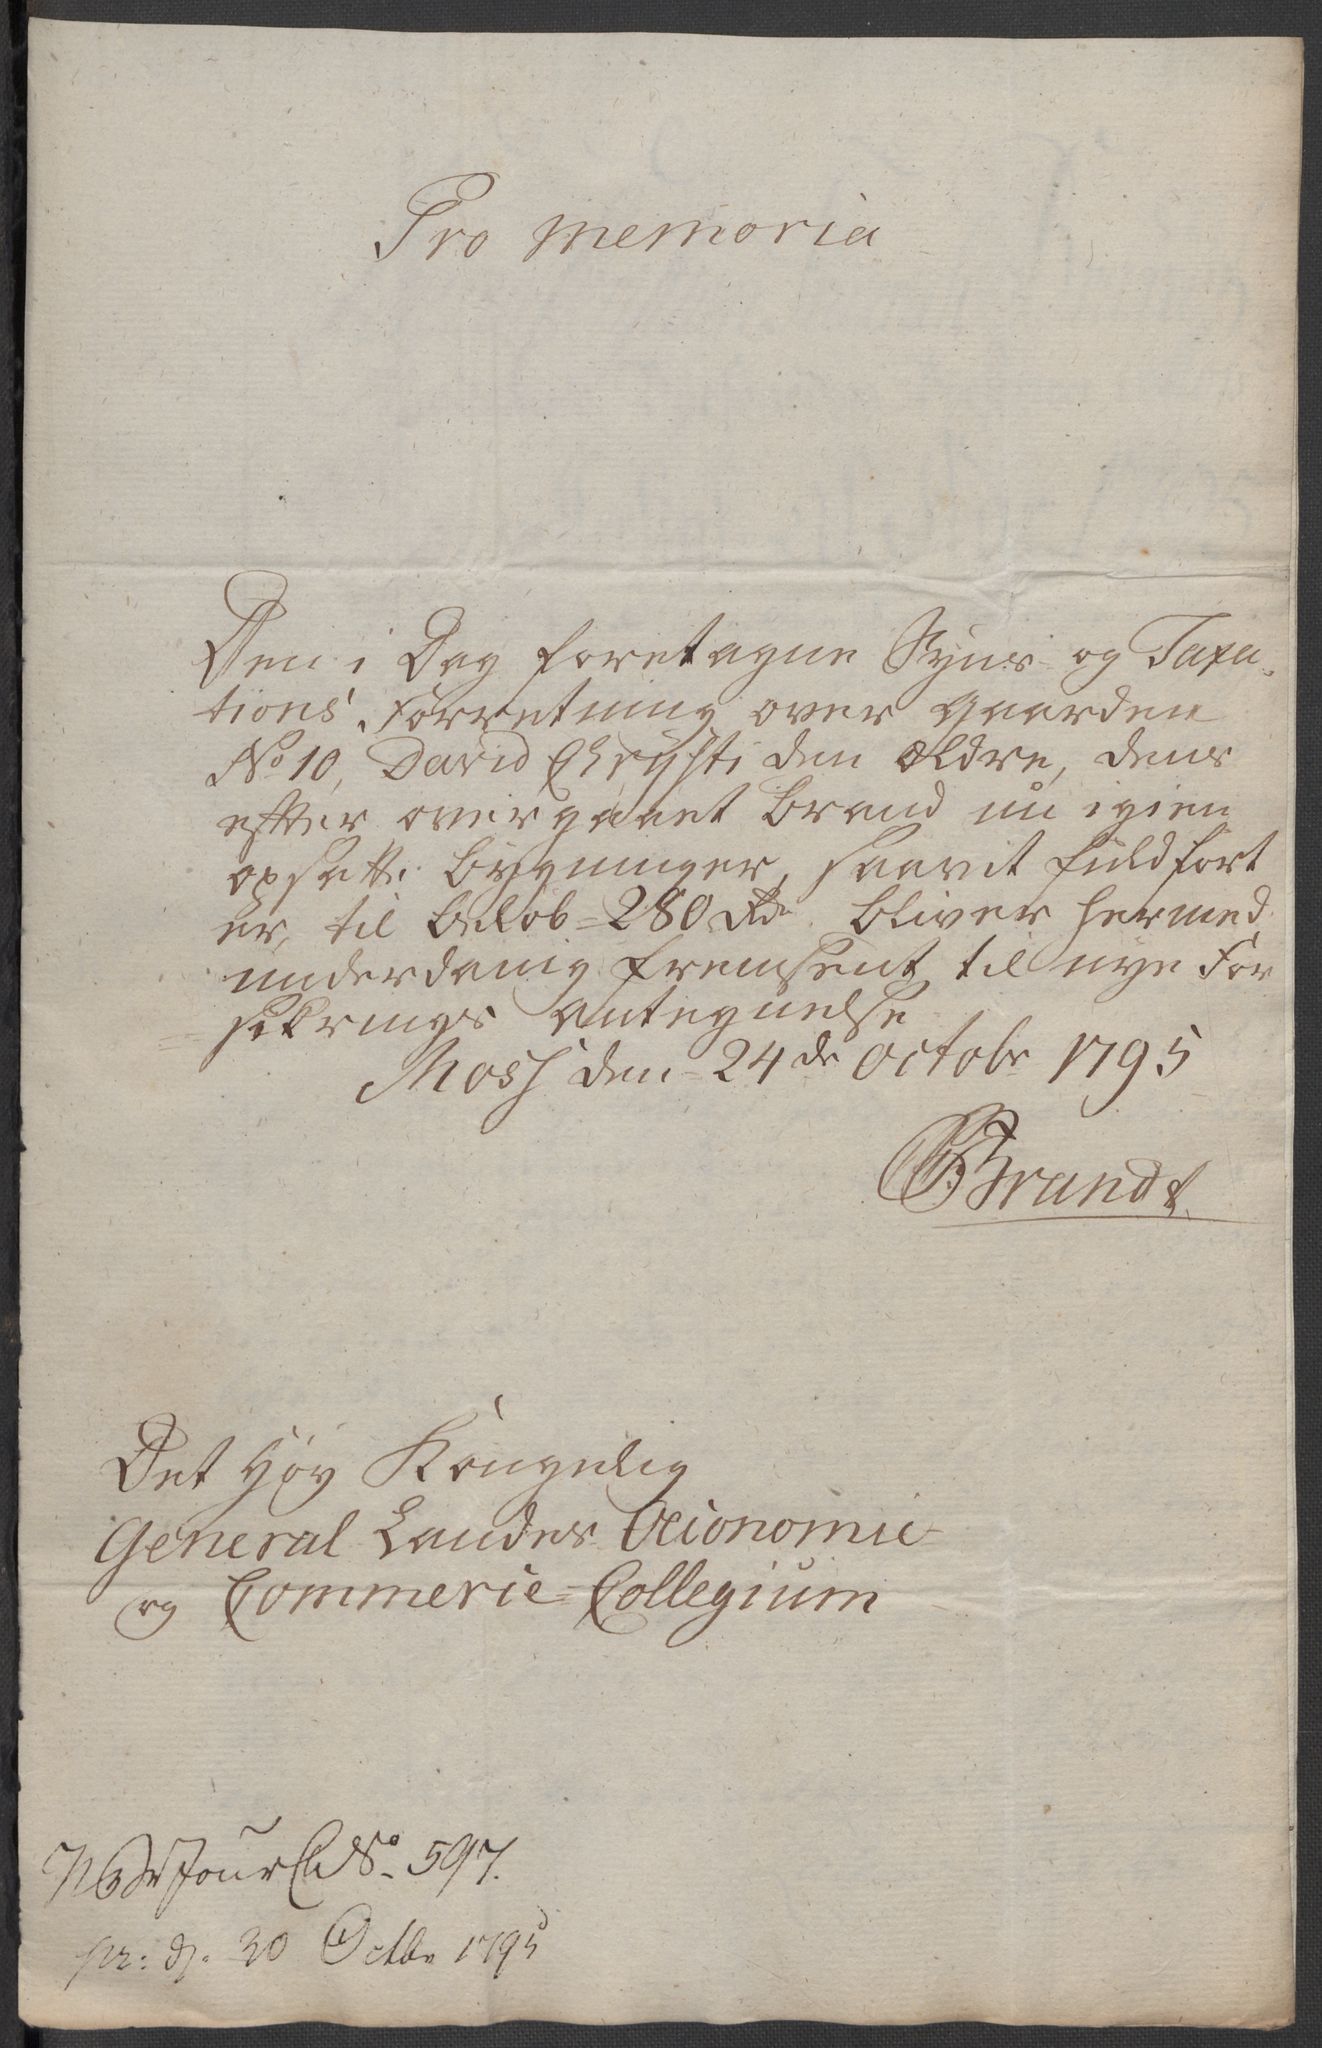 Pro Memoria
Den i Dag foretagne Syns- og Taxa-
tions Forretning over Gaarden
No 10, David Chrysti den Ældre, dens
efter overgaaet Brand nu igien
opsatte bygninger, saavit fuldført
er, til beløb = 280 Rd. bliver hermed
underdanig fremsent til nye For
sikrings antegnelse
Moss den 24de Octobr 1795
Brandt
Det Høy Kongelig
General Landes Oeconomie
og Commerce-Collegium
Jour No. 597.
pr: d. 30 Octbr 1795